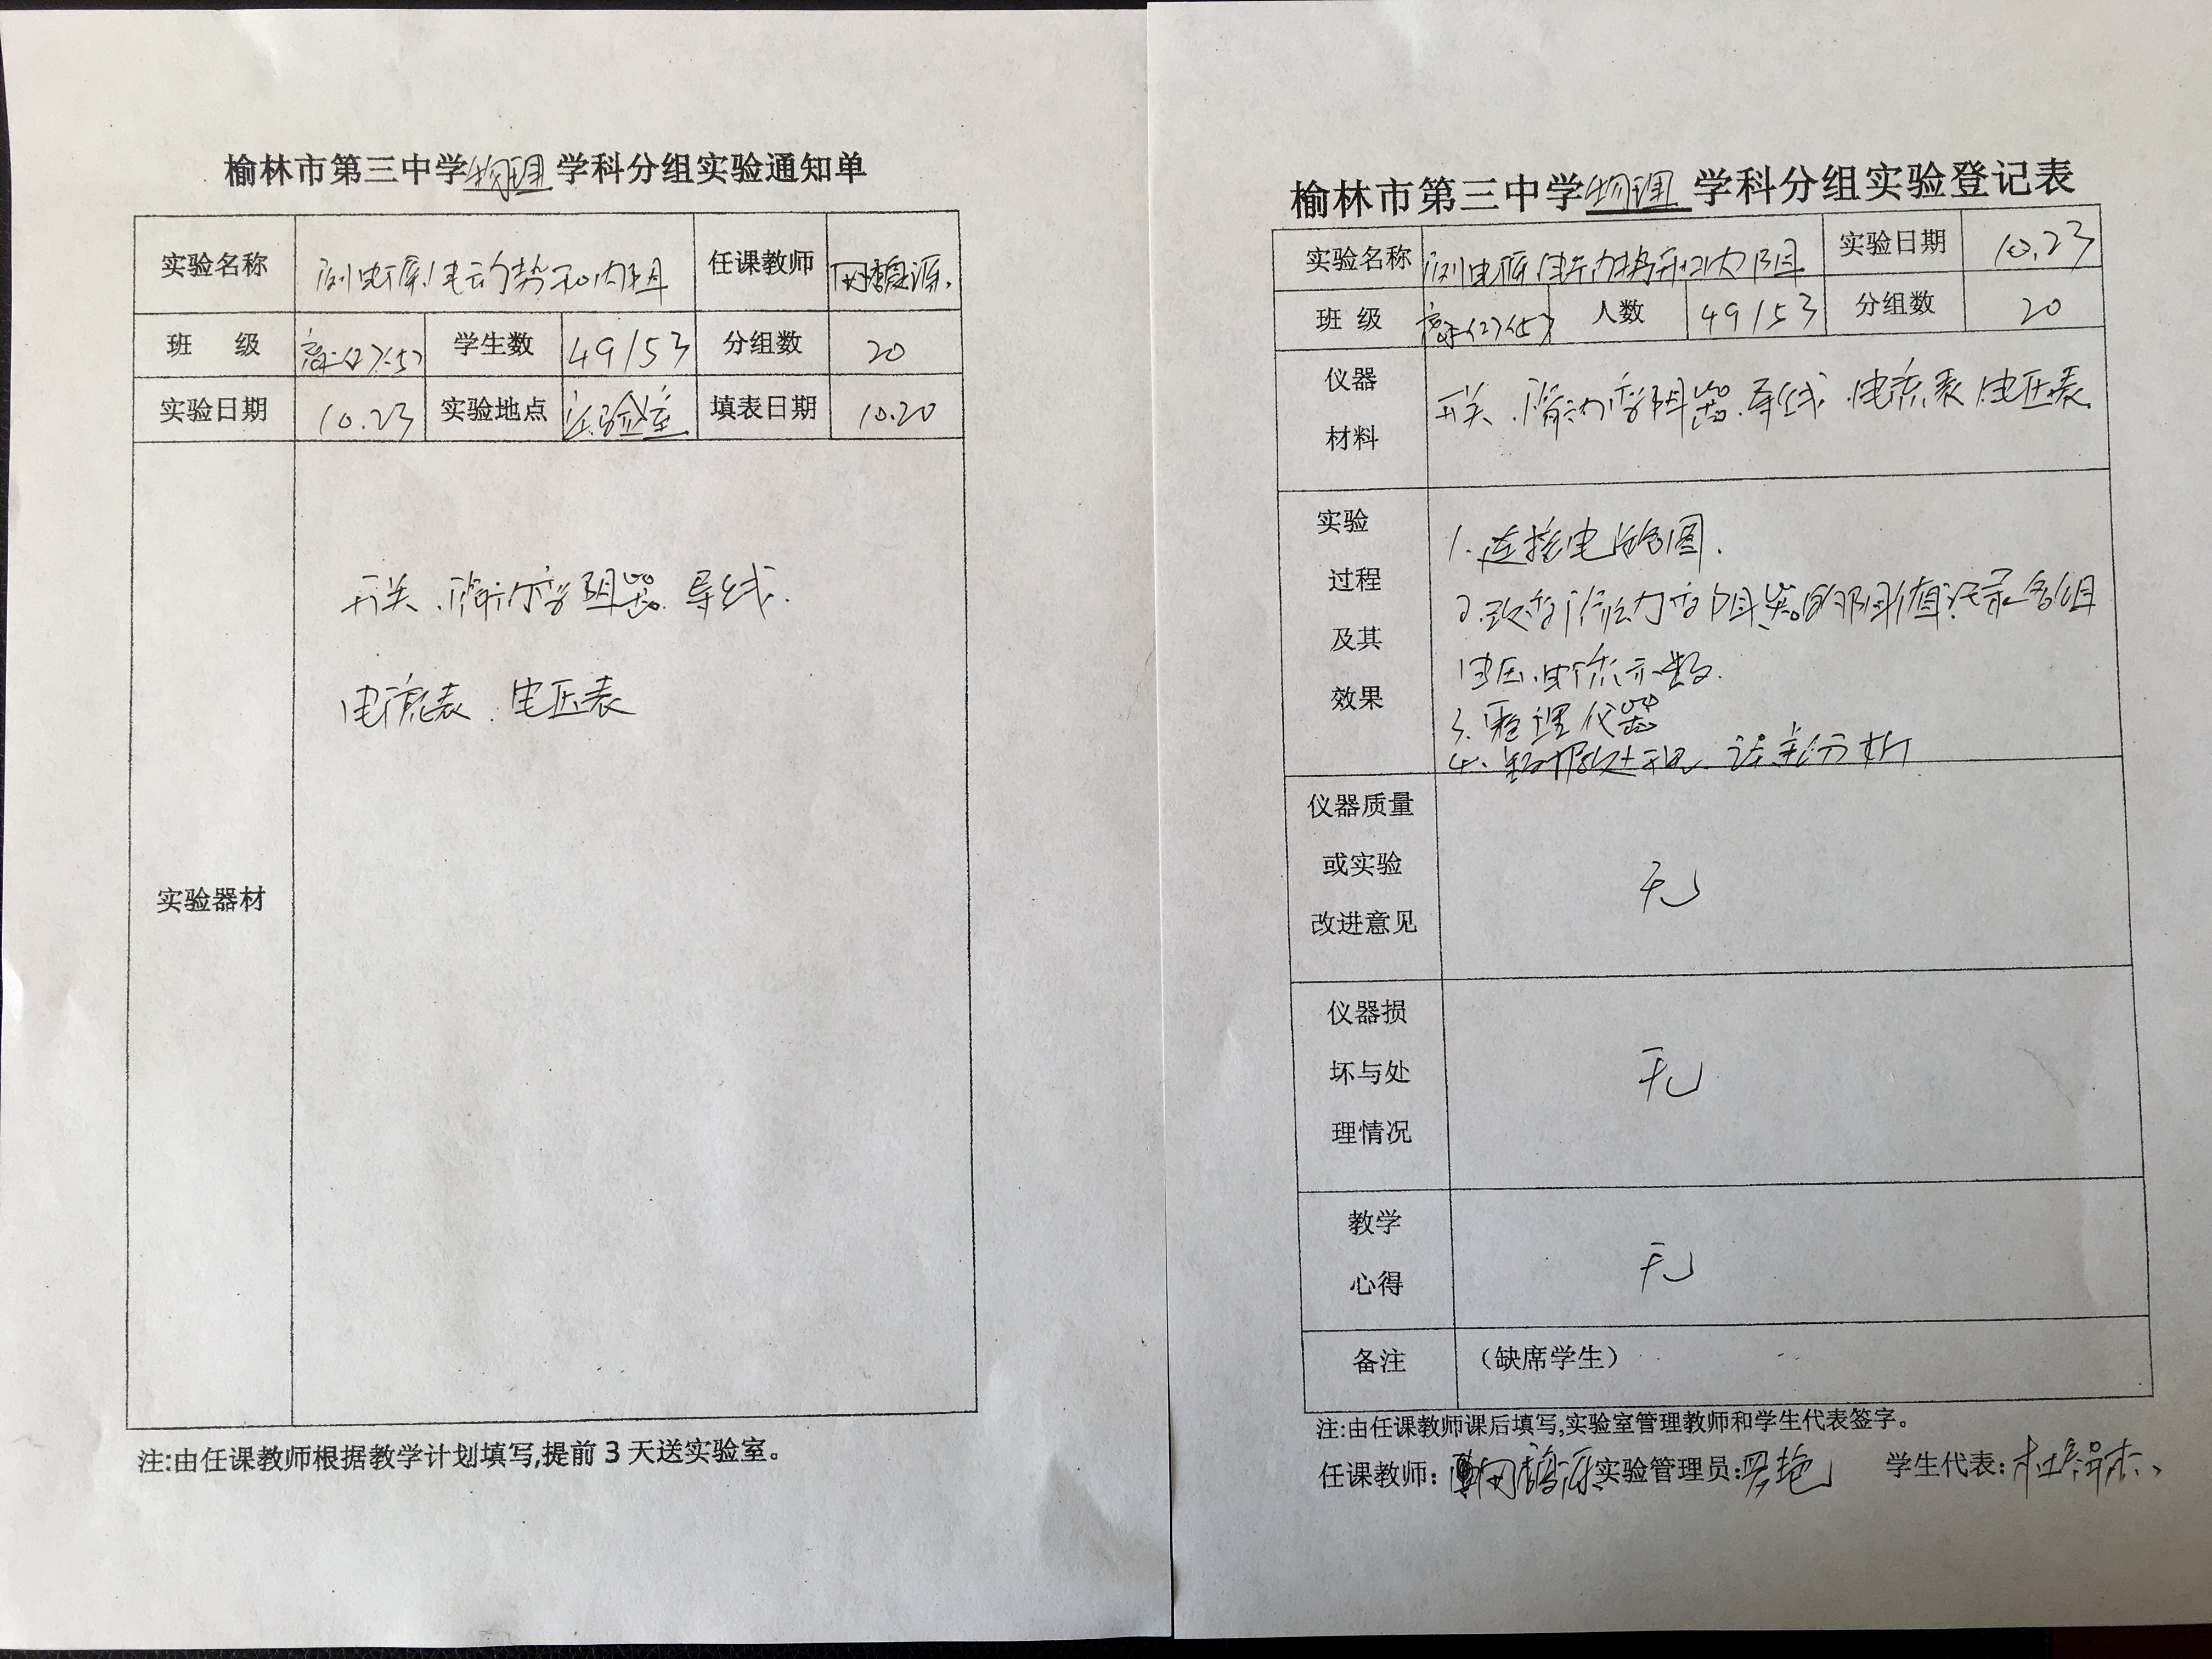 榆林市第三中学物理学科分组实验通知单
实验名称 测电源电动势和内阻 任课教师
班 级 高二(2)(5) 学生数 49/53 分组数 20
实验日期 10.23 实验地点 实验室 填表日期 10.20
实验器材
开关.滑动变阻器.导线.
电流表.电压表
注:由任课教师根据教学计划填写,提前3天送实验室。
榆林市第三中学物理学科分组实验登记表
实验名称 测电源电动势和内阻 实验日期 10.23
班 级 高二(2)(5) 人数 49/53 分组数 20
仪器
材料
开关.滑动变阻器.导线.电流表.电压表
实验
过程
及其
效果
1.连接电路图.
2.改变滑动变阻器的阻值记录各组
电压.电流示数.
3.整理仪器
4.数据处理.误差分析
仪器质量
或实验
改进意见
无
仪器损
坏与处
理情况
无
教学
心得
无
备注 （缺席学生）
注:由任课教师课后填写,实验室管理教师和学生代表签字。
任课教师: 实验管理员: 学生代表: